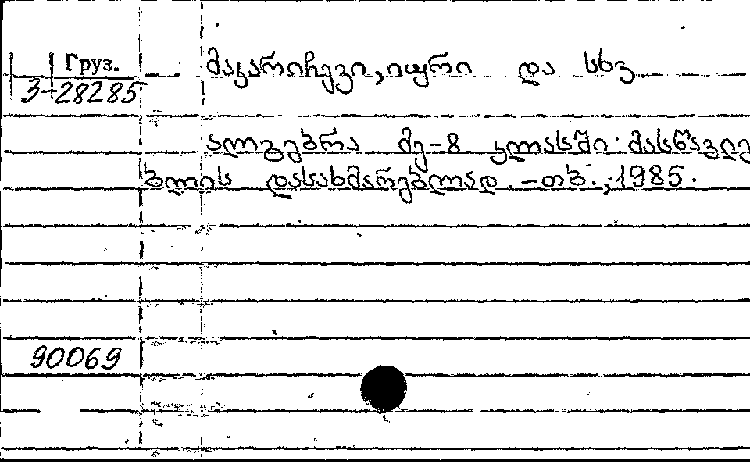 Груз.
3-28285
მაკარიჩევი, იური და სხვ
ალგებრა მე-8 კლასში: მასწავლე
ბლის დასახმარებლად. - თბ., 1985.
90069